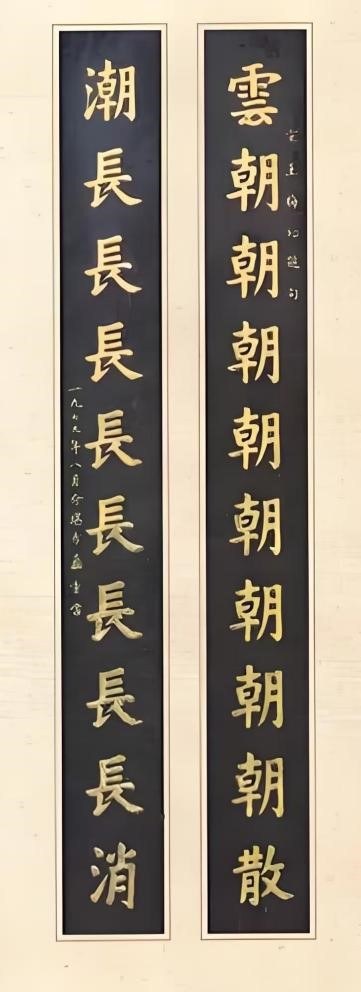 雲朝朝朝朝朝朝朝朝散
宋王梅溪題句
潮長長長長長長長長消
一九年八月